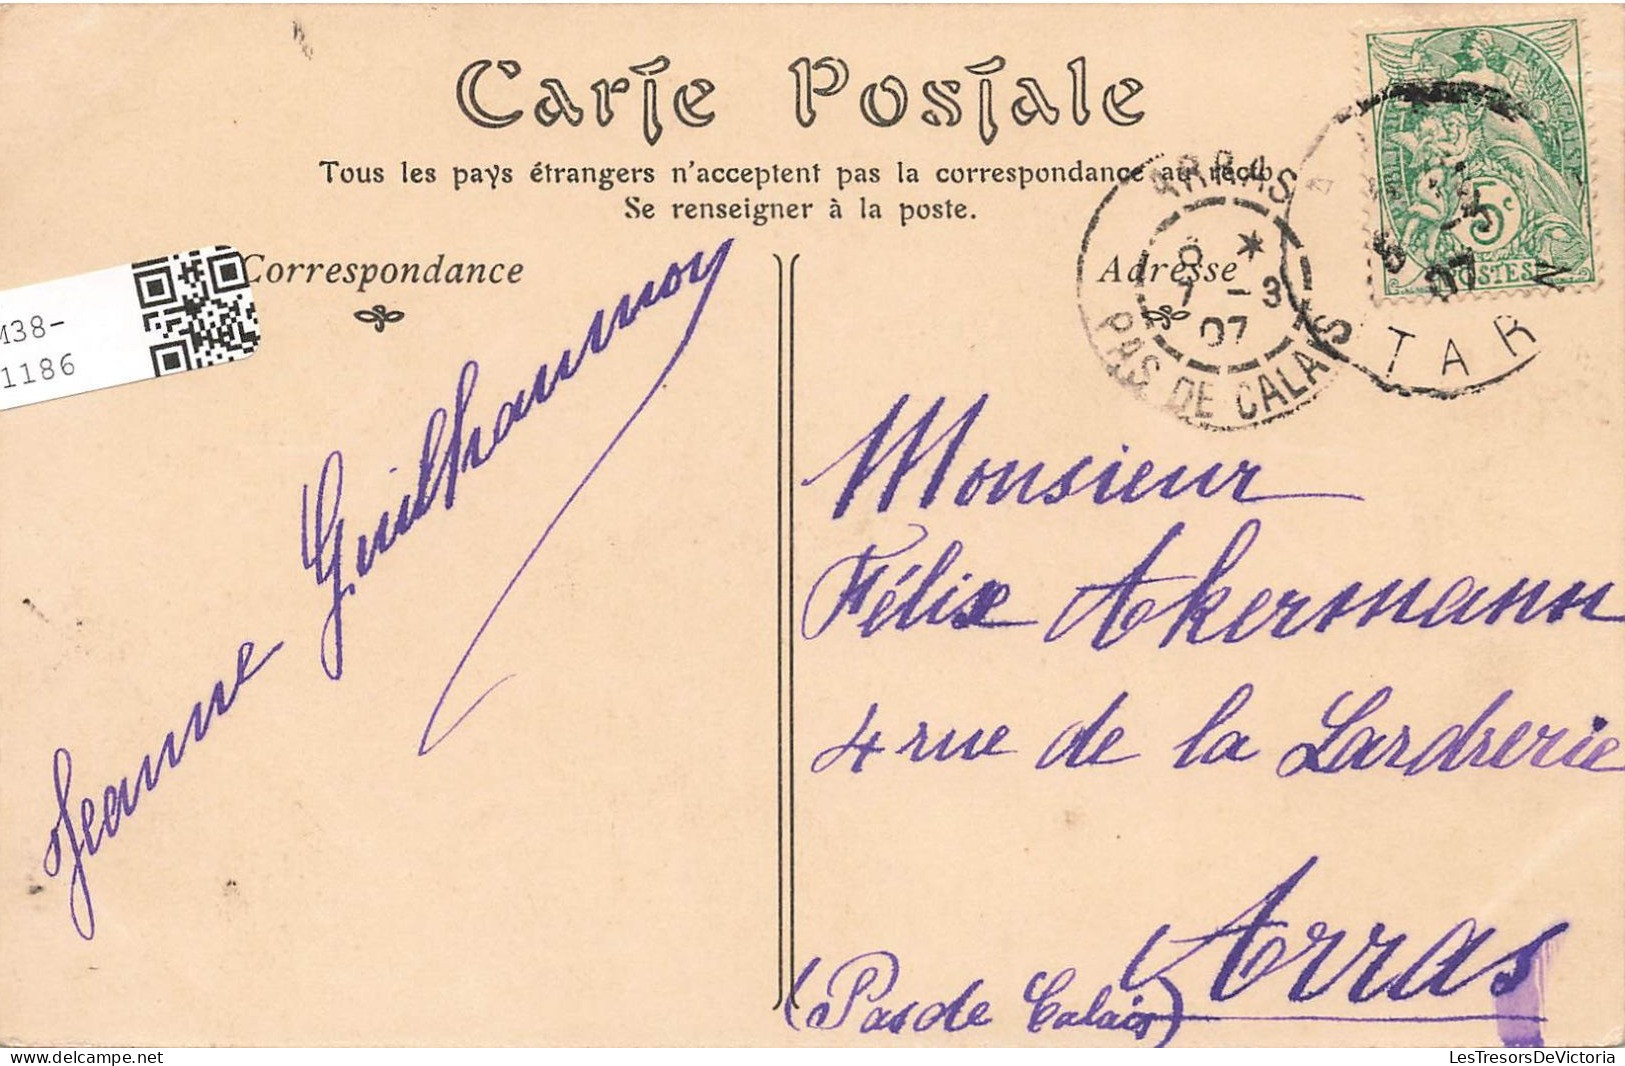 Carte Postale
Tous les pays étrangers n'acceptent pas la correspondance au recto
Se renseigner à la poste.
Correspondance
Adresse
M38-
1186
RÉPUBLIQUE FRANÇAISE
5c
POSTES
ARRAS
7 - 3
07
PAS DE CALAIS
5
07
TARN
Jeanne Guilhaumoy
Monsieur
Félix Akermann
4 rue de la Larderie
Arras
(Pas de Calais)
LesTresorsDeVictoria